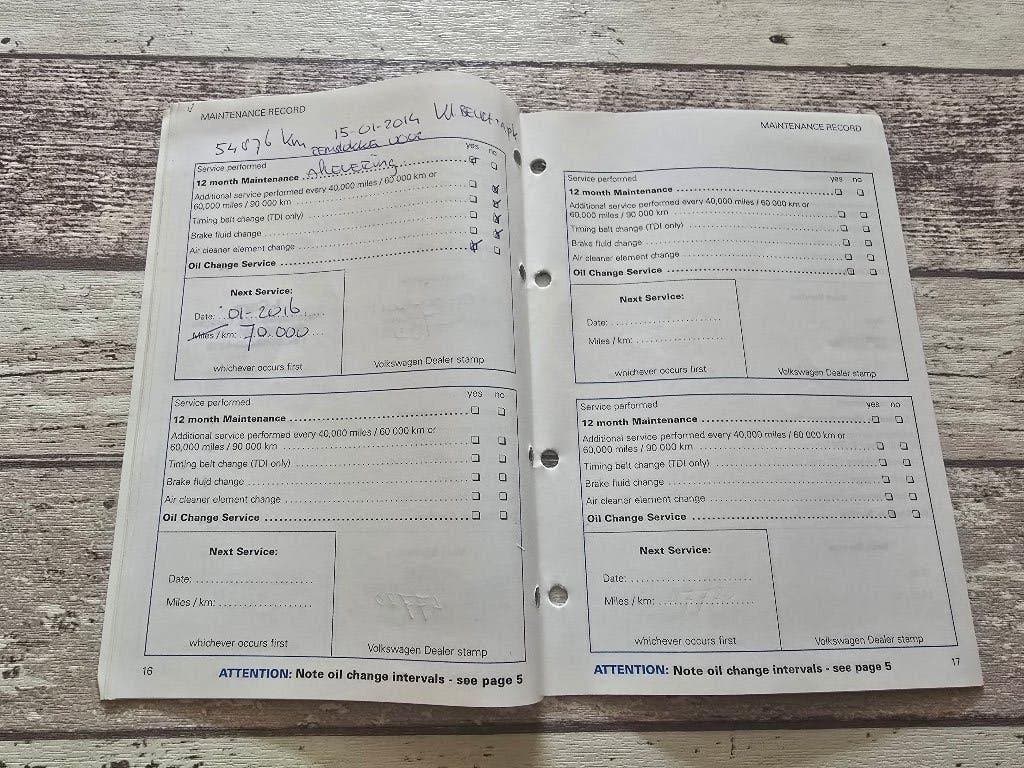 MAINTENANCE RECORD
54876 km 15-01-2014 VW
voor
Service performed yes no
12 month Maintenance Aflevering
Additional service performed every 40,000 miles / 60 000 km or
60,000 miles / 90 000 km
Timing belt change (TDI only)
Brake fluid change
Air cleaner element change
Oil Change Service
Next Service:
Date: 01-2016
Miles / km: 70.000
whichever occurs first
Volkswagen Dealer stamp
Service performed yes no
12 month Maintenance
Additional service performed every 40,000 miles / 60 000 km or
60,000 miles / 90 000 km
Timing belt change (TDI only)
Brake fluid change
Air cleaner element change
Oil Change Service
Next Service:
Date:
Miles / km:
whichever occurs first
Volkswagen Dealer stamp
16
ATTENTION: Note oil change intervals - see page 5
MAINTENANCE RECORD
Service performed yes no
12 month Maintenance
Additional service performed every 40,000 miles / 60 000 km or
60,000 miles / 90 000 km
Timing belt change (TDI only)
Brake fluid change
Air cleaner element change
Oil Change Service
Next Service:
Date:
Miles / km:
whichever occurs first
Volkswagen Dealer stamp
Service performed yes no
12 month Maintenance
Additional service performed every 40,000 miles / 60 000 km or
60,000 miles / 90 000 km
Timing belt change (TDI only)
Brake fluid change
Air cleaner element change
Oil Change Service
Next Service:
Date:
Miles / km:
whichever occurs first
Volkswagen Dealer stamp
ATTENTION: Note oil change intervals - see page 5
17